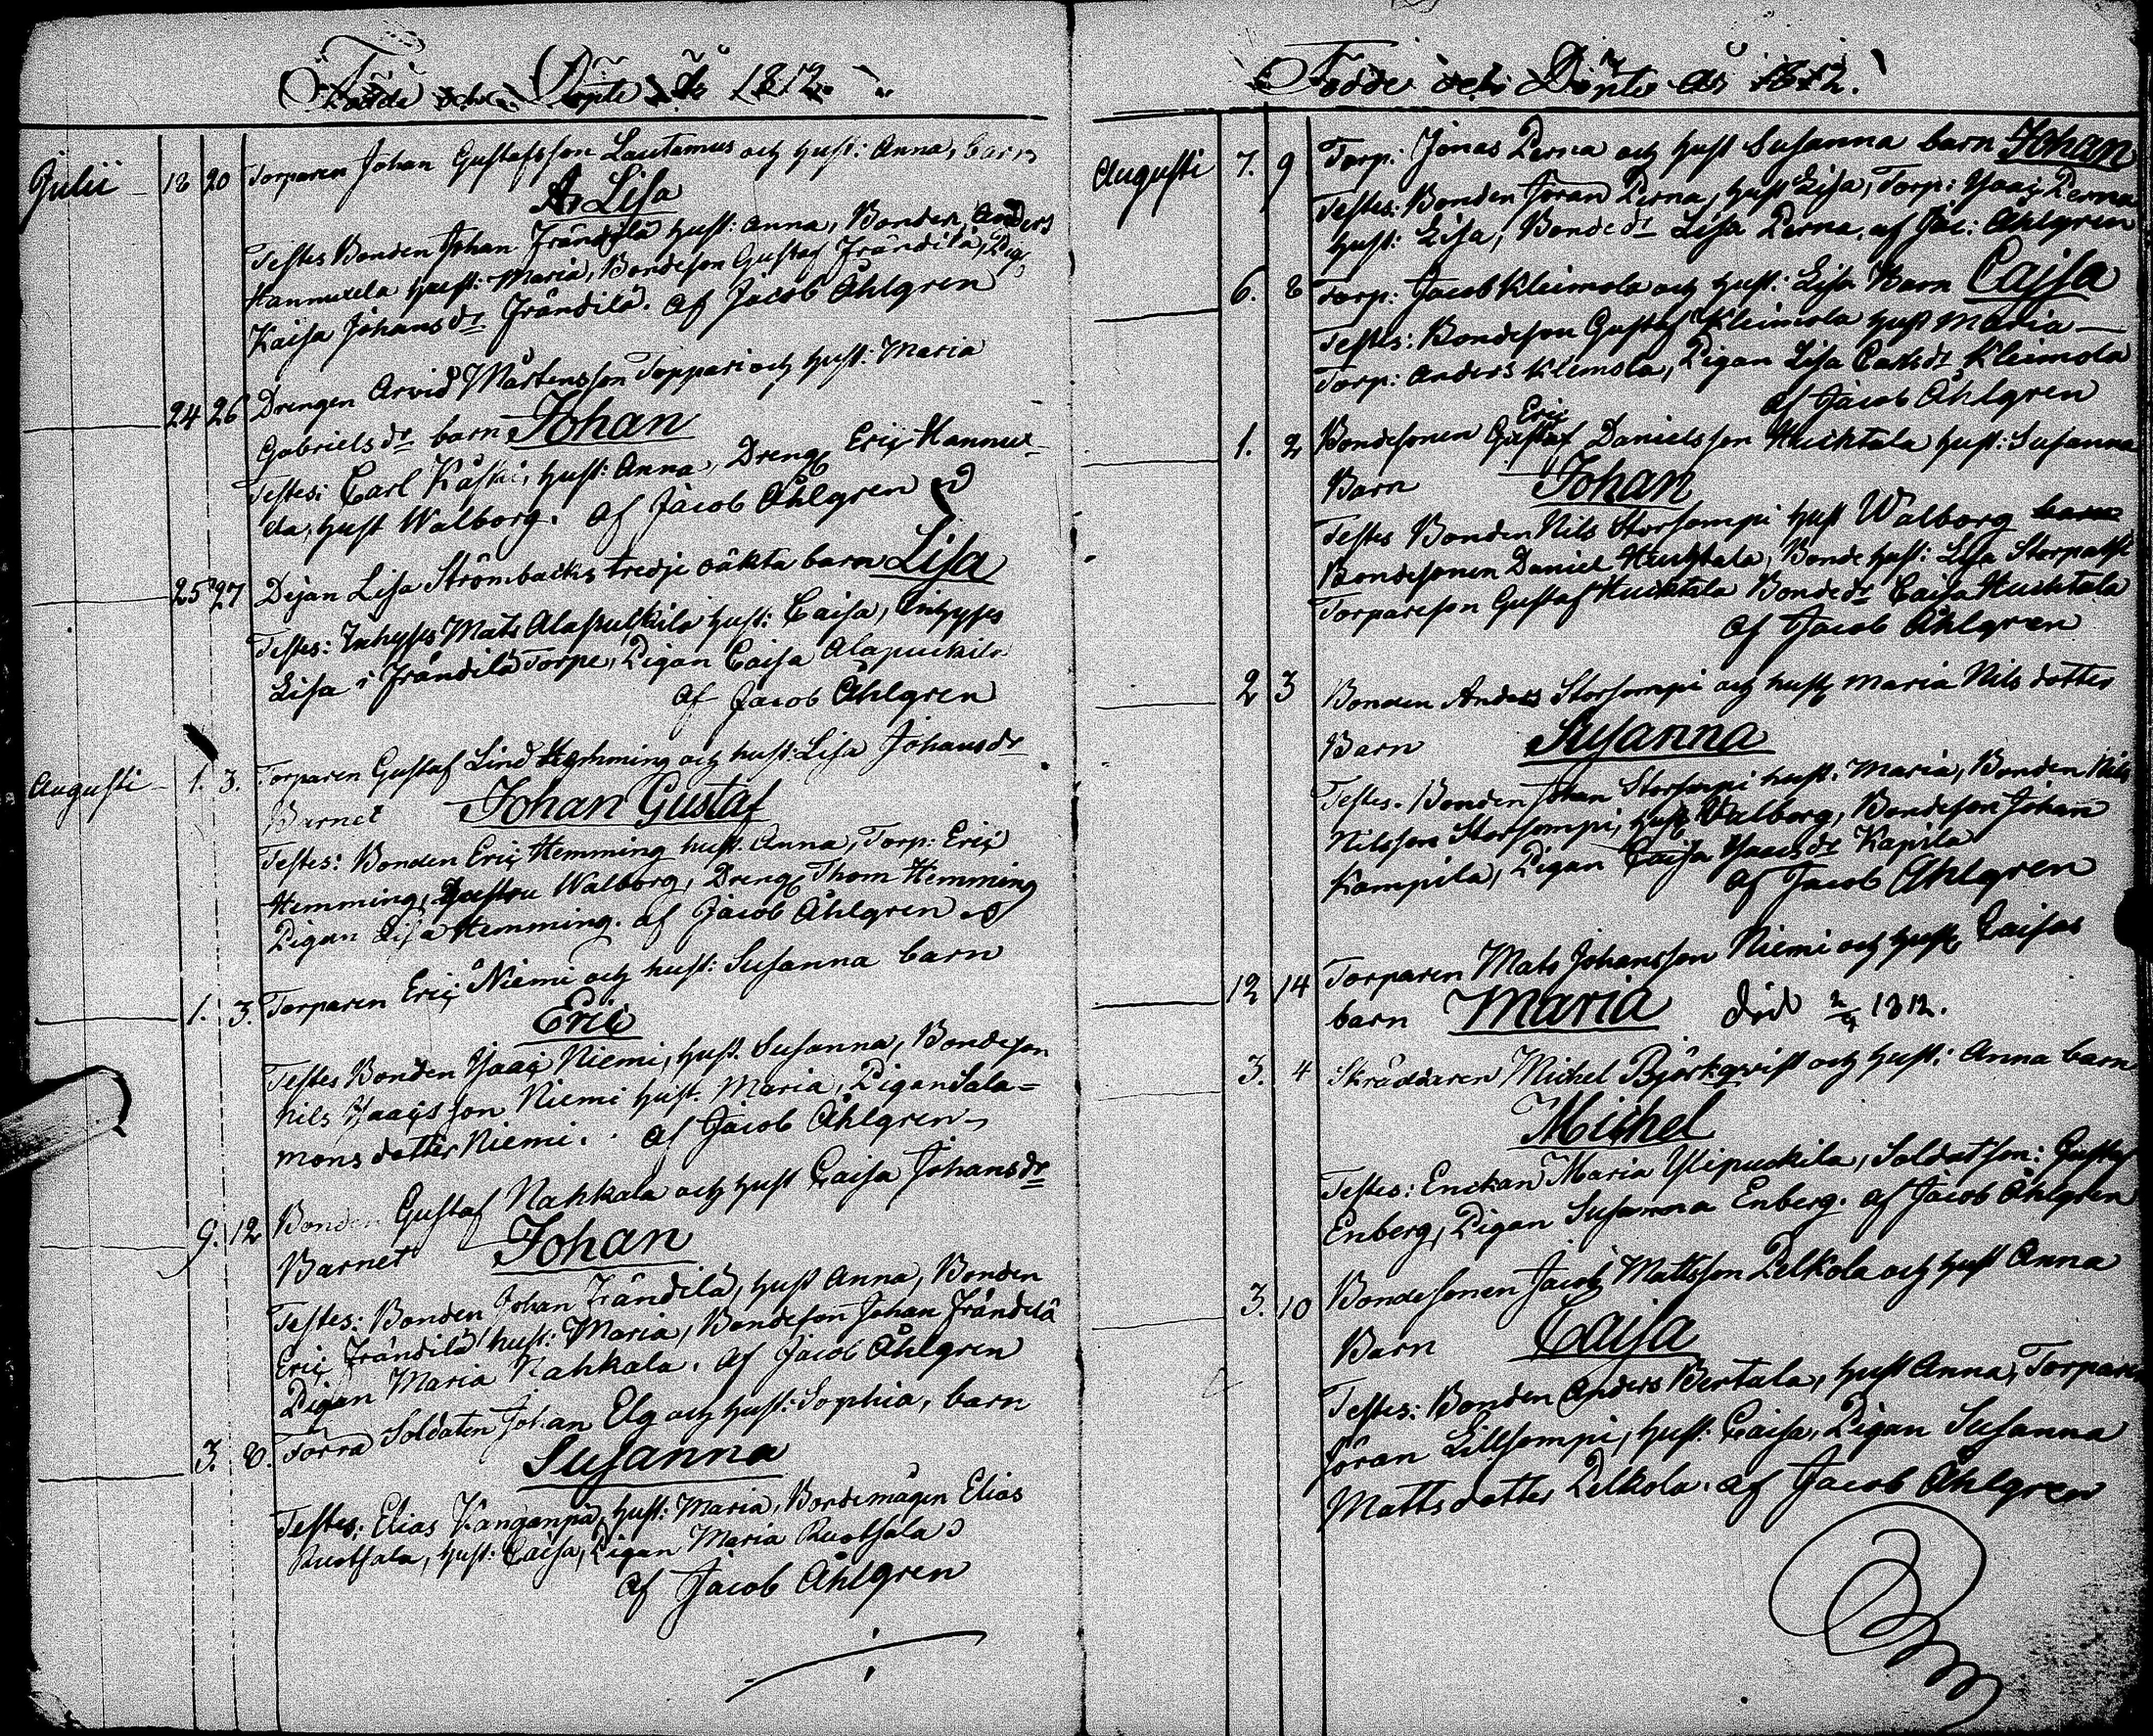 Födde och Döpte år 1812.
Julii 18 20 Torparen Johan Gustafsson Lautamus och hust: Anna, barn
Lisa
Testes Bonden Johan Frändilä hust: Anna, Bonden Anders
Hannuxela hust: Maria, Bondeson Gustaf Frändilä, Pig
Kaisa Johansdr Frändilä. af Jacob Åhlgren
24 26 Drengen Arvid Mårtensson Toppari och hust: Maria
Gabrielsdr barn Johan
Testes: Carl Kåski, hust: Anna, Dreng Eric Hannux-
ela, hust Walborg. af Jacob Åhlgren
25 27 Pijan Lisa Strömbacks tredje oäkta barn Lisa
Testes: Inhyses Mats Alapuckila hust: Caisa, Inhyses
Lisa i Frändilä Torpe, Pigan Caisa Alapuckila
af Jacob Åhlgren
Augusti 1. 3. Torparen Gustaf Lind Hemming och hust: Lisa Johansdr
Barnet Johan Gustaf
Testes: Bonden Eric Hemming hust: Anna, Torp: Eric
Hemming, Hustru Walborg, Dreng Thom Hemming
Pigan Lisa Hemming. af Jacob Åhlgren
1. 3. Torparen Eric Niemi och hust: Susanna barn
Eric
Testes Bonden Ysaac Niemi, hust. Susanna, Bondeson
Nils Ysaacsson Niemi hust. Maria, Pigan Sala=
mons dotter Niemi. af Jacob Åhlgren
9. 12 Bonden Gustaf Nahkala och hust Caisa Johansdr
Barnet Johan
Testes: Bonden Johan Frändilä, hust Anna, Bonden
Eric Frändilä hust: Maria, Bondeson Johan Frändilä
Pigan Maria Nahkala. af Jacob Åhlgren
3. 8. Förra Soldaten Johan Elg och hust: Sophia, barn
Susanna
Testes: Elias Kanganpä, hust: Maria, Bondemågen Elias
Ruotsala, hust: Caisa, Pigan Maria Ruotsala
af Jacob Åhlgren
Födde och Döpte År 1812.
Augusti 7. 9 Torp: Jonas Perna och hust Susanna barn Johan
Testes: Bonden Jöran Perna, hust Lisa, Torp: Ysaac Perna
hust: Lisa, Bondedr Lisa Perna, af Jac: Åhlgren
6. 8 Torp: Jacob Kleimola och hust: Lisa Barn Caisa
Testes: Bondeson Gustaf Kleimola hust Maria
Torp: Anders Kleimola, Pigan Lisa Carlsdr Kleimola
af Jacob Åhlgren
Eric
1. 2 Bondesonen Gustaf Danielsson Huchtala hust: Susanna
Barn Johan
Testes Bonden Nils Storsompi hust Walborg barn
Bondesonen Daniel Huchtala, Bonde hust: Lisa Storpatsi
Torpareson Gustaf Huchtala Bondedr Caisa Huchtala
af Jacob Åhlgren
2 3 Bonden Anders Storsompi och hust Maria Nils dotter
Barn Susanna
Testes. Bonden Johan Storsompi hust. Maria, Bonden Nils
Nilsson Storsompi, hust Walborg, Bondeson Johan
Kampila, Pigan Caisa Ysaacsdr Kapila
af Jacob Åhlgren
12 14 Torparen Mats Johansson Niemi och hust Caisas
barn Maria död 2/9 1812.
3. 4 Skräddaren Michel Björkqvist och hust: Anna barn
Michel
Testes: Enckan Maria Ylipuckila, Soldatson: Gustaf
Enberg, Pigan Susanna Enberg. af Jacob Åhlgren
3. 10 Bondesonen Jacob Mattsson Pelkola och hust Anna
Barn Caisa
Testes: Bonden Anders Bertala, hust Anna, Torparen
Jöran Lillsompi, hust: Caisa, Pigan Susanna
Mattsdotter Pelkola. af Jacob Åhlgren